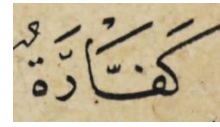 كَفَّارَةٌ